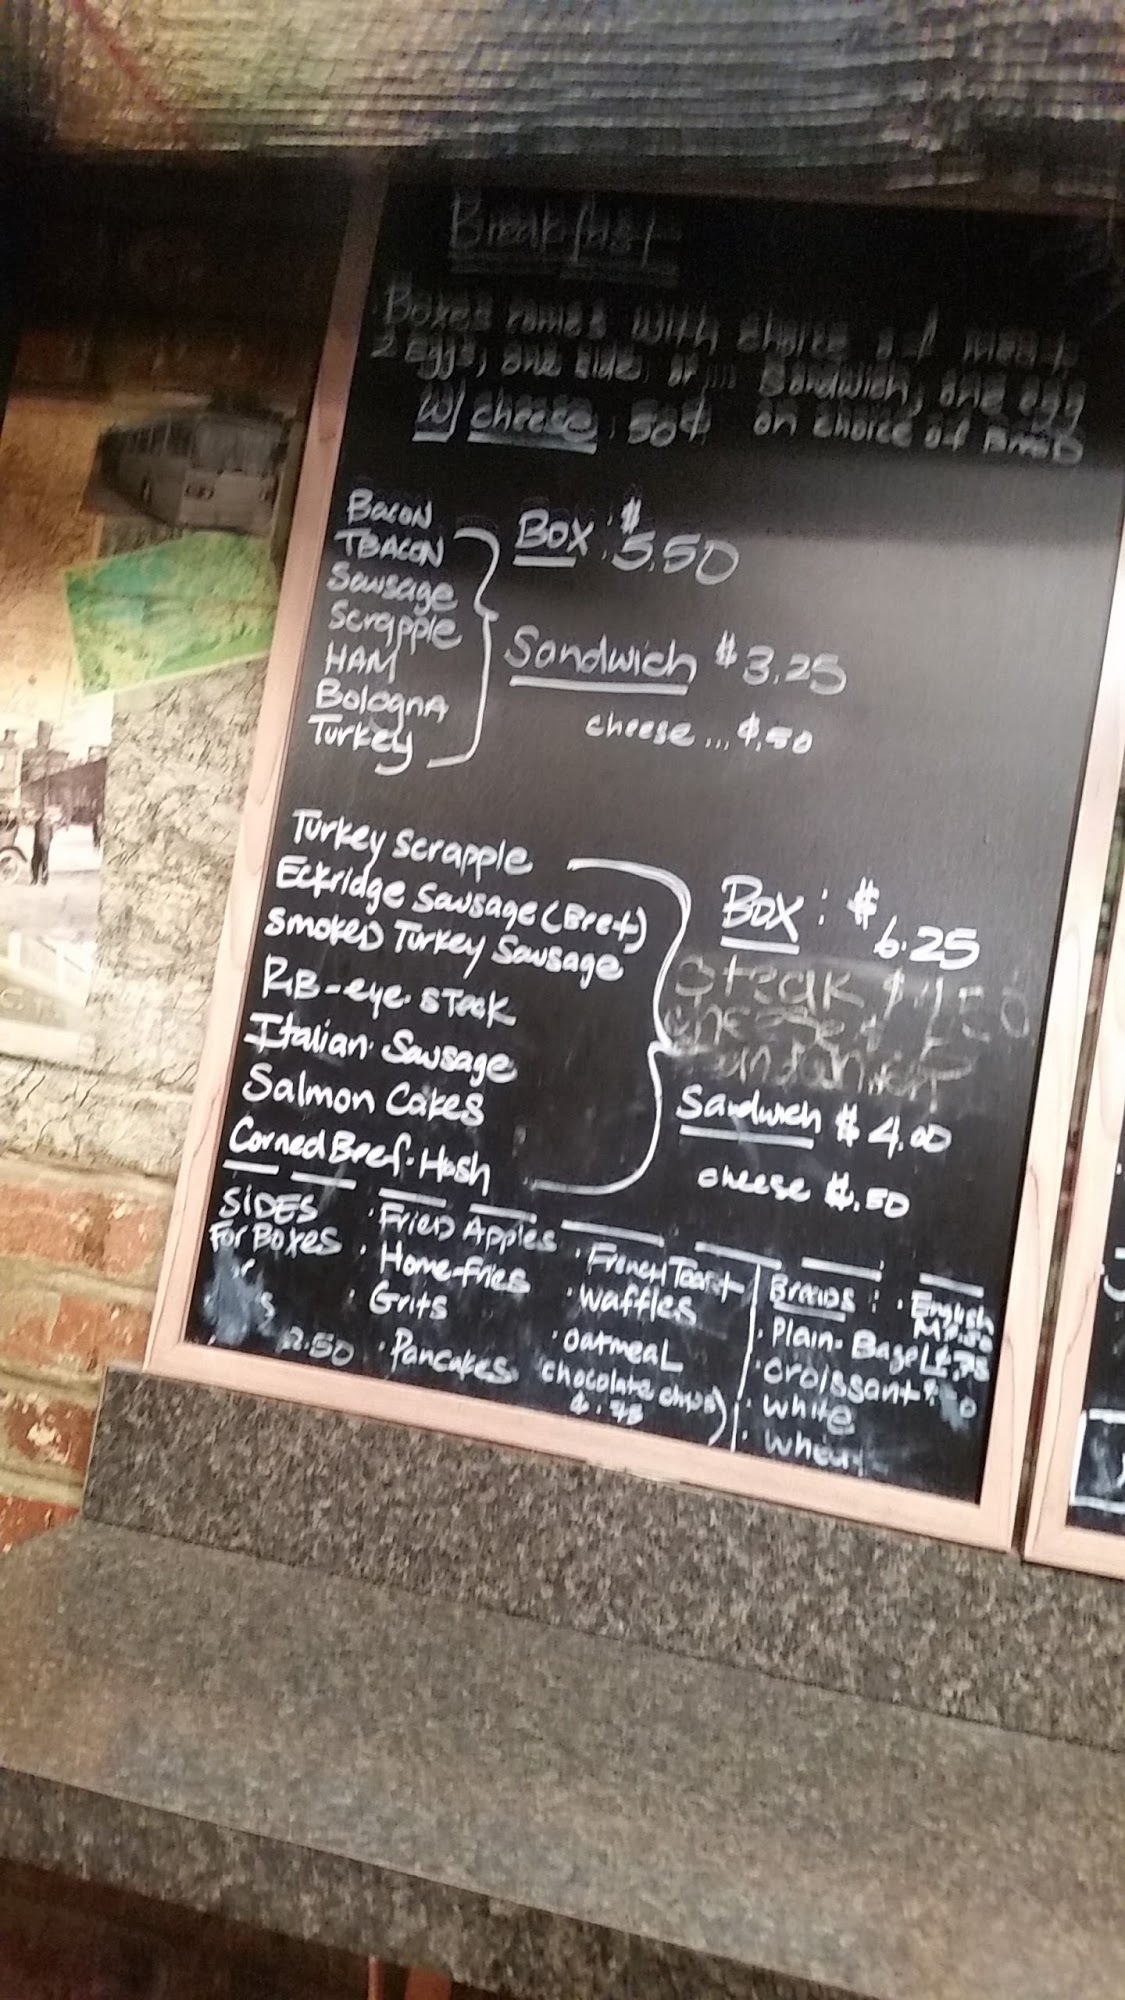 Breakfast
Boxes comes with choice of meat
2 eggs, one side. or Sandwich, one egg
W/ cheese: 50¢ on choice of BREAD
BACON
TBACON
Sausage
Scrapple
HAM
BolognA
Turkey
Box: $5.50
Sandwich $3.25
cheese... $.50
Turkey Scrapple
Eckridge Sausage (Beef)
Smoked Turkey Sausage
RIB-eye. STeak
Italian. Sausage
Salmon Cakes
Corned Beef-Hash
Box: $6.25
Steak
cheese
Sandwich $4.00
cheese $.50
SIDES
For Boxes
2.50
· Fried Apples
· Home-Fries
· Grits
· Pancakes
· French Toast
· Waffles
· OatmeaL
chocolate chips)
$.75
Breads: · English
Plain. Bagel $.75
· croissant
· white
· wheat